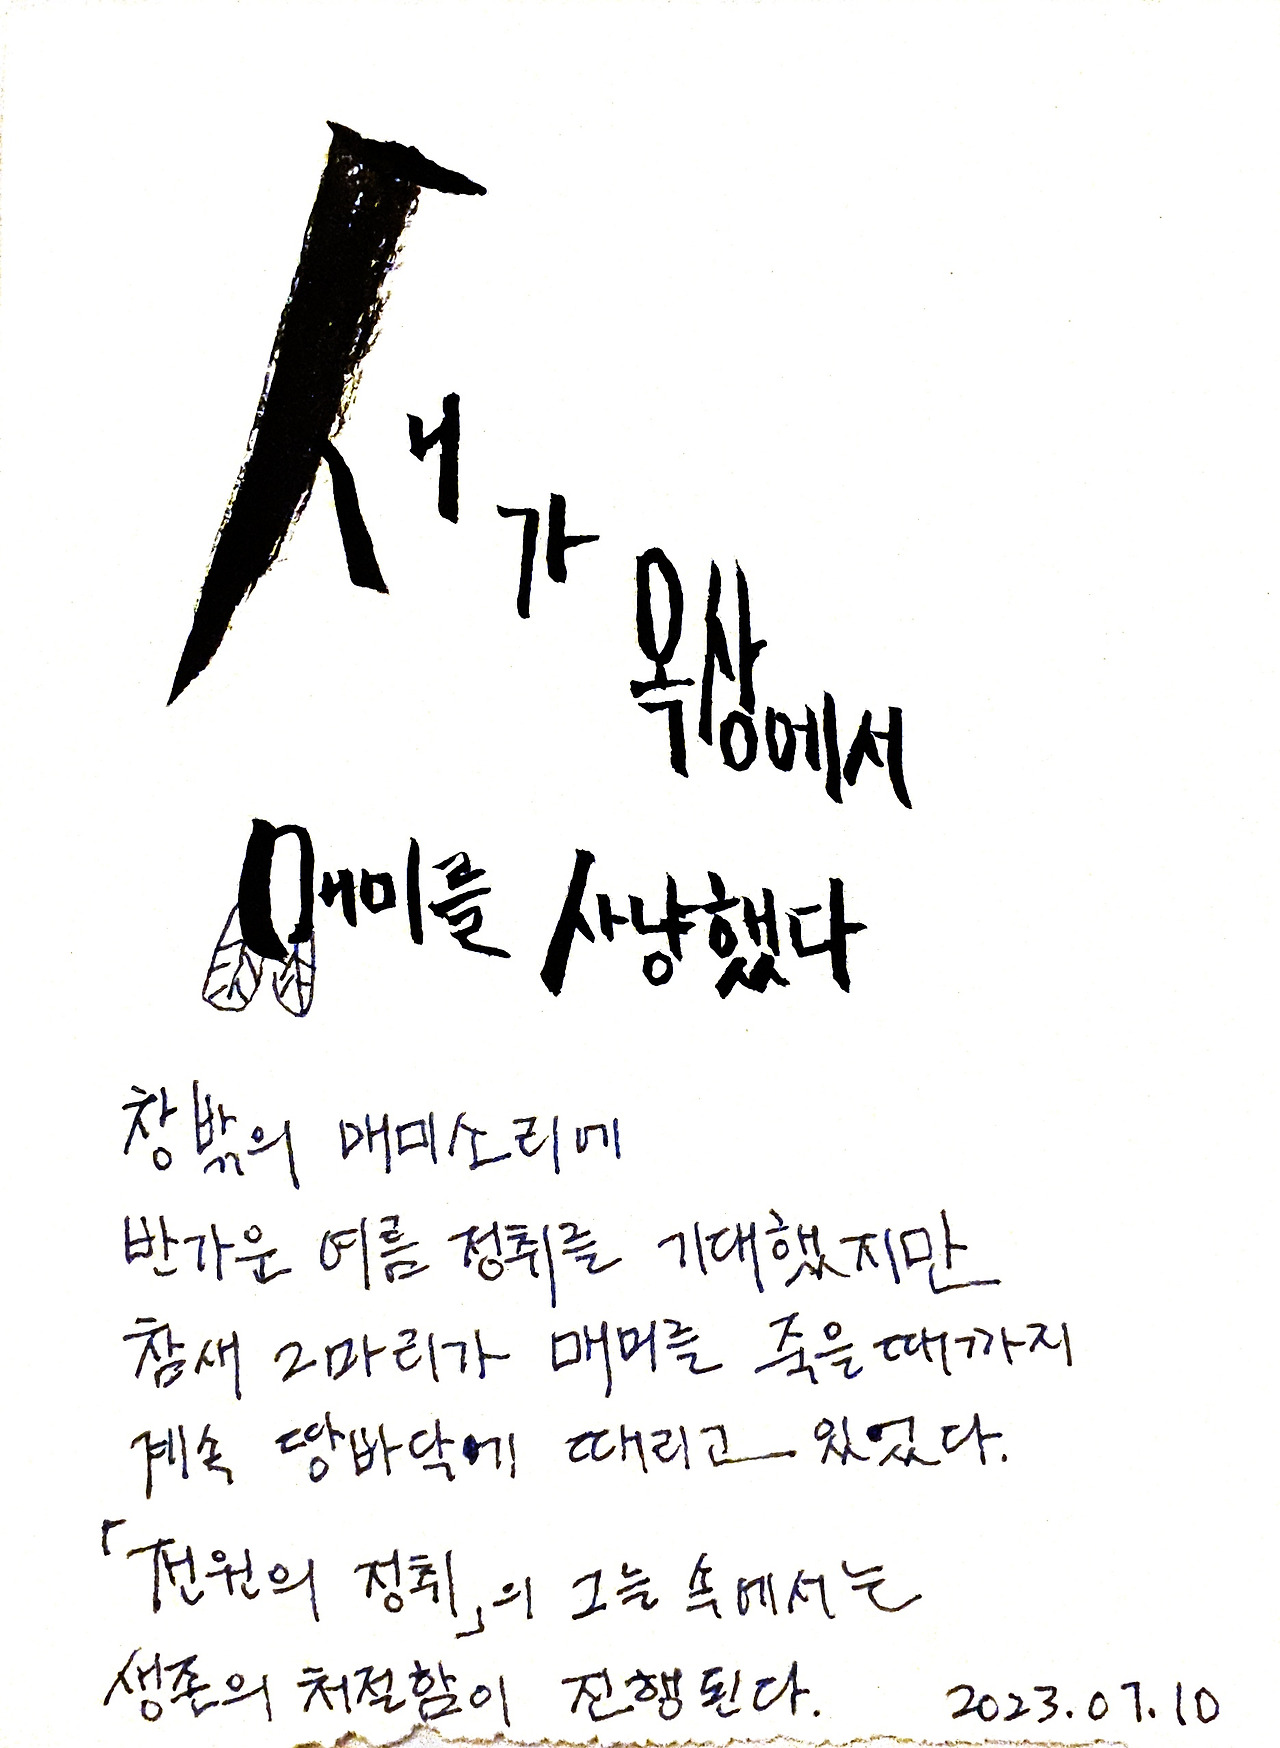 새가 옥상에서
매미를 사냥했다
창밖의 매미소리에
반가운 여름 정취를 기대했지만
참새 2마리가 매미를 죽을때까지
계속 땅바닥에 때리고 있었다.
「전원의 정취」의 그늘 속에서는
생존의 처절함이 진행된다. 2023.07.10